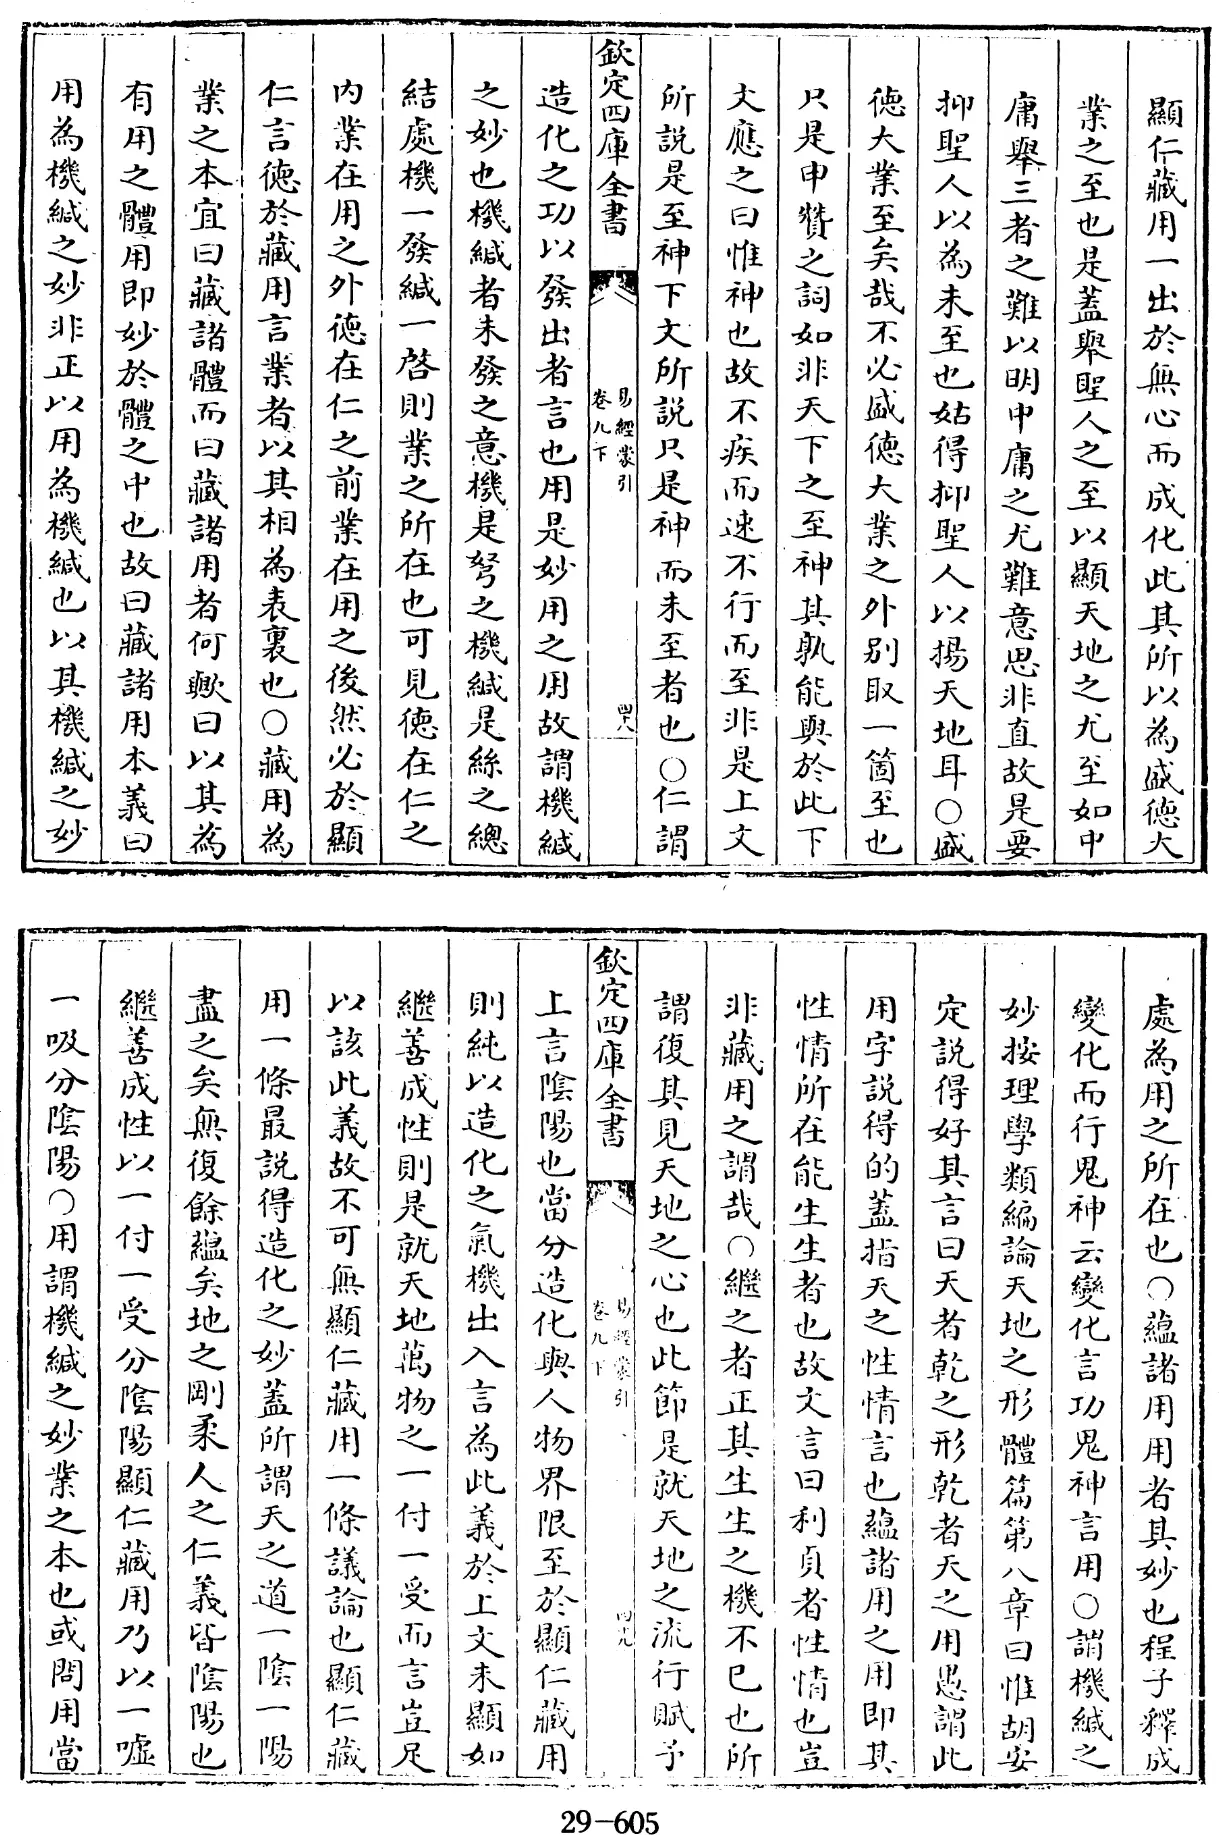 顯仁藏用一出於無心而成化此其所以為盛德大
業之至也是蓋舉聖人之至以顯天地之尤至如中
庸舉三者之難以明中庸之尤難意思非直故是要
抑聖人以為未至也姑得抑聖人以揚天地耳○盛
德大業至矣哉不必盛德大業之外别取一箇至也
只是申贊之詞如非天下之至神其孰能與於此下
文應之曰惟神也故不疾而速不行而至非是上文
所説是至神下文所説只是神而未至者也○仁謂
欽定四庫全書
易經蒙引
卷九下
四十八
造化之功以發出者言也用是妙用之用故謂機緘
之妙也機緘者未發之意機是弩之機緘是絲之總
結處機一發緘一啓則業之所在也可見徳在仁之
内業在用之外徳在仁之前業在用之後然必於顯
仁言徳於藏用言業者以其相為表裏也○藏用為
業之本宜曰藏諸體而曰藏諸用者何歟曰以其為
有用之體用即妙於體之中也故曰藏諸用本義曰
用為機緘之妙非正以用為機緘也以其機緘之妙
處為用之所在也○藴諸用用者其妙也程子釋成
變化而行鬼神云變化言功鬼神言用○謂機緘之
妙按理學類編論天地之形體篇第八章曰惟胡安
定説得好其言曰天者乾之形乾者天之用愚謂此
用字説得的蓋指天之性情言也藴諸用之用即其
性情所在能生生者也故文言曰利貞者性情也豈
非藏用之謂哉○繼之者正其生生之機不已也所
謂復其見天地之心也此節是就天地之流行賦予
欽定四庫全書
易經蒙引
卷九下
四十九
上言隂陽也當分造化與人物界限至於顯仁藏用
則純以造化之氣機出入言為此義於上文未顯如
繼善成性則是就天地萬物之一付一受而言豈足
以該此義故不可無顯仁藏用一條議論也顯仁藏
用一條最説得造化之妙蓋所謂天之道一隂一陽
盡之矣無復餘藴矣地之剛柔人之仁義皆隂陽也
繼善成性以一付一受分隂陽顯仁藏用乃以一嘘
一吸分隂陽○用謂機緘之妙業之本也或問用當
29-605